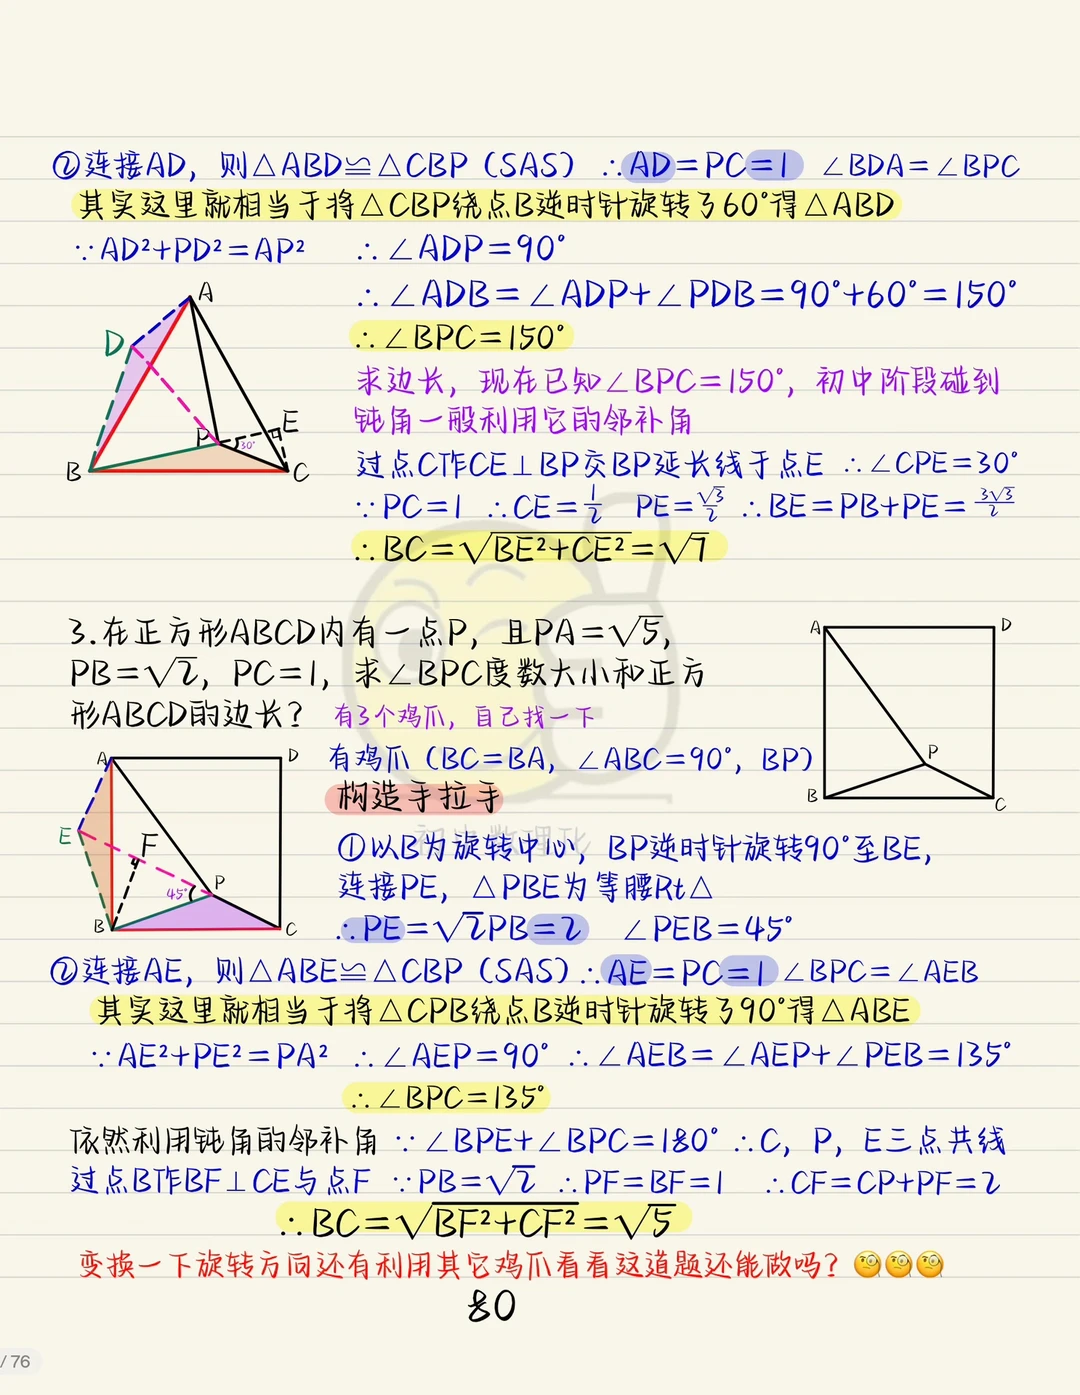 ②连接AD，则△ABD≌△CBP（SAS） ∴AD=PC=1 ∠BDA=∠BPC
其实这里就相当于将△CBP绕点B逆时针旋转了60°得△ABD
∵AD²+PD²=AP² ∴∠ADP=90°
∴∠ADB=∠ADP+∠PDB=90°+60°=150°
∴∠BPC=150°
求边长，现在已知∠BPC=150°，初中阶段碰到
钝角一般利用它的邻补角
过点C作CE⊥BP交BP延长线于点E ∴∠CPE=30°
∵PC=1 ∴CE=1/2 PE=√3/2 ∴BE=PB+PE=3√3/2
∴BC=√(BE²+CE²)=√7
A
D
P
30°
E
B
C
3.在正方形ABCD内有一点P，且PA=√5，
PB=√2，PC=1，求∠BPC度数大小和正方
形ABCD的边长？ 有3个鸡爪，自己找一下
A
D
P
B
C
有鸡爪（BC=BA，∠ABC=90°，BP）
构造手拉手
①以B为旋转中心，BP逆时针旋转90°至BE，
连接PE，△PBE为等腰Rt△
∴PE=√2PB=2 ∠PEB=45°
A
D
E
F
45°
P
B
C
②连接AE，则△ABE≌△CBP（SAS）∴AE=PC=1 ∠BPC=∠AEB
其实这里就相当于将△CPB绕点B逆时针旋转了90°得△ABE
∵AE²+PE²=PA² ∴∠AEP=90° ∴∠AEB=∠AEP+∠PEB=135°
∴∠BPC=135°
依然利用钝角的邻补角 ∵∠BPE+∠BPC=180° ∴C，P，E三点共线
过点B作BF⊥CE与点F ∵PB=√2 ∴PF=BF=1 ∴CF=CP+PF=2
∴BC=√(BF²+CF²)=√5
变换一下旋转方向还有利用其它鸡爪看看这道题还能做吗？🧐🧐🧐
80
/ 76